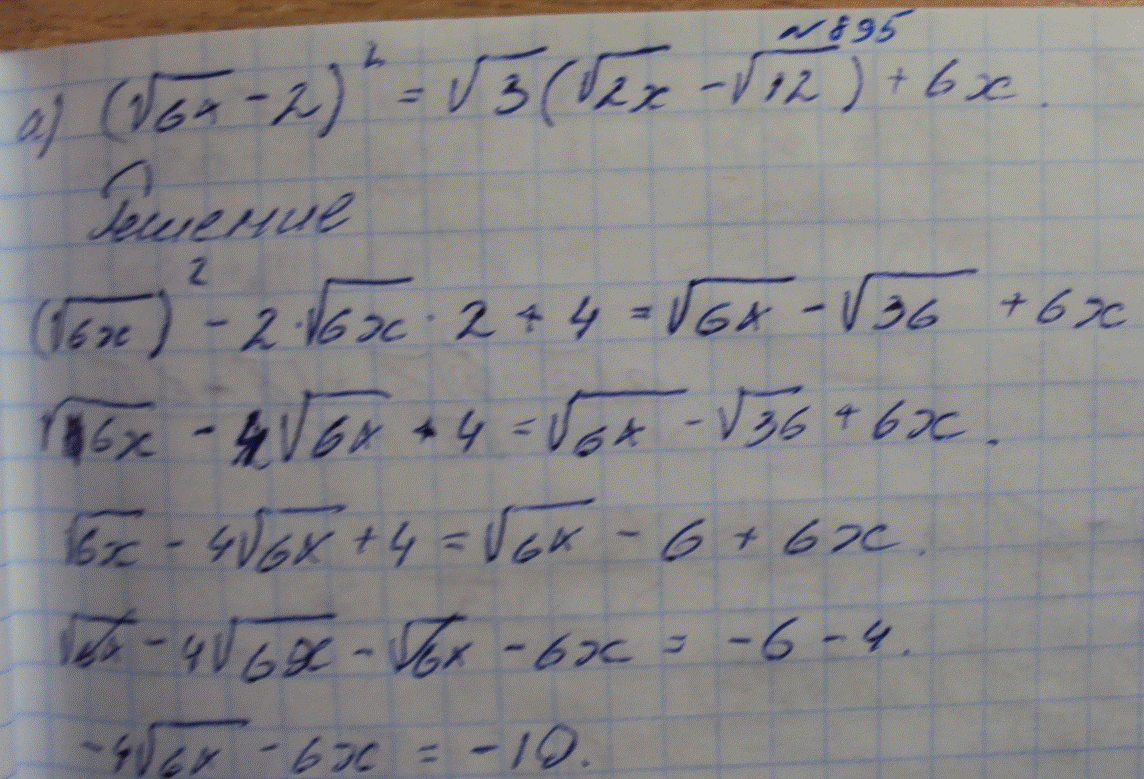 №895
а) (√6x - 2)² = √3(√2x - √12) + 6x.
Решение
(√6x)² - 2·√6x·2 + 4 = √6x - √36 + 6x
√6x - 4√6x + 4 = √6x - √36 + 6x.
√6x - 4√6x + 4 = √6x - 6 + 6x.
√6x - 4√6x - √6x - 6x = -6 - 4.
-4√6x - 6x = -10.